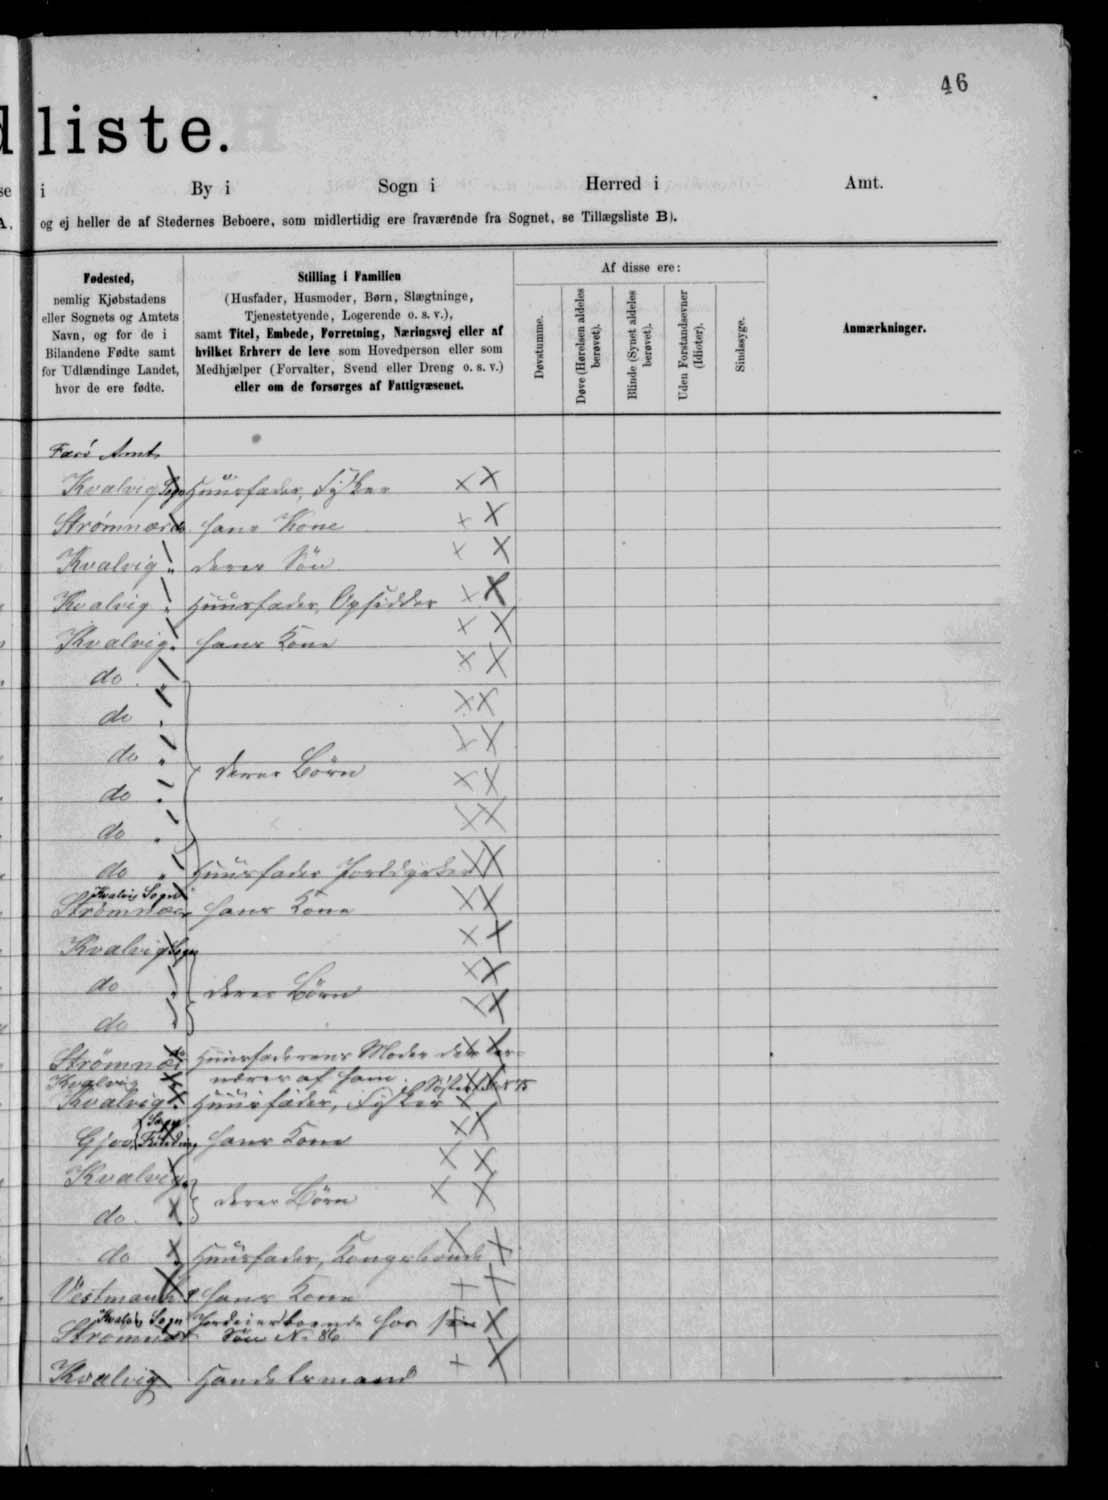 46
liste.
i By i Sogn i Herred i Amt.
og ej heller de af Stedernes Beboere, som midlertidig ere fraværende fra Sognet, se Tillægsliste B).
Fødested,
nemlig Kjøbstadens
eller Sognets og Amtets
Navn, og for de i
Bilandene Fødte samt
for Udlændinge Landet,
hvor de ere fødte.
Stilling i Familien
(Husfader, Husmoder, Børn, Slægtninge,
Tjenestetyende, Logerende o. s. v.),
samt Titel, Embede, Forretning, Næringsvej eller af
hvilket Erhverv de leve som Hovedperson eller som
Medhjælper (Forvalter, Svend eller Dreng o. s. v.)
eller om de forsørges af Fattigvæsenet.
Af disse ere:
Døvstumme.
Døve (Hørelsen aldeles
berøvet).
Blinde (Synet aldeles
berøvet).
Uden Forstandsevner
(Idioter).
Sindssyge.
Anmærkninger.
Færø Amt
Kvalvig Sogn Huusfader, Fisker
Strømnæs do hans Kone
Kvalvig " deres Søn
Kvalvig " Huusfader, Opsidder
Kvalvig " hans Kone
do "
do "
do "
deres Børn
do "
do "
do " Huusfader Jorddyrker
Kvalvig Sogn
Strømnæs hans Kone
Kvalvig Sogn
do "
deres Børn
do "
Strømnæs do Huusfaderens Moder
Kvalvig næres af ham
Kvalvig " Huusfader, Fisker
Sogn
Gjov hans Kone
Kvalvig
deres Børn
do
do Huusfader, Kongsbonde
Vestmanh. hans Kone
Kvalvig Sogn
Strømnæs boende hos
Søn No 86
Kvalvig Handelsmand